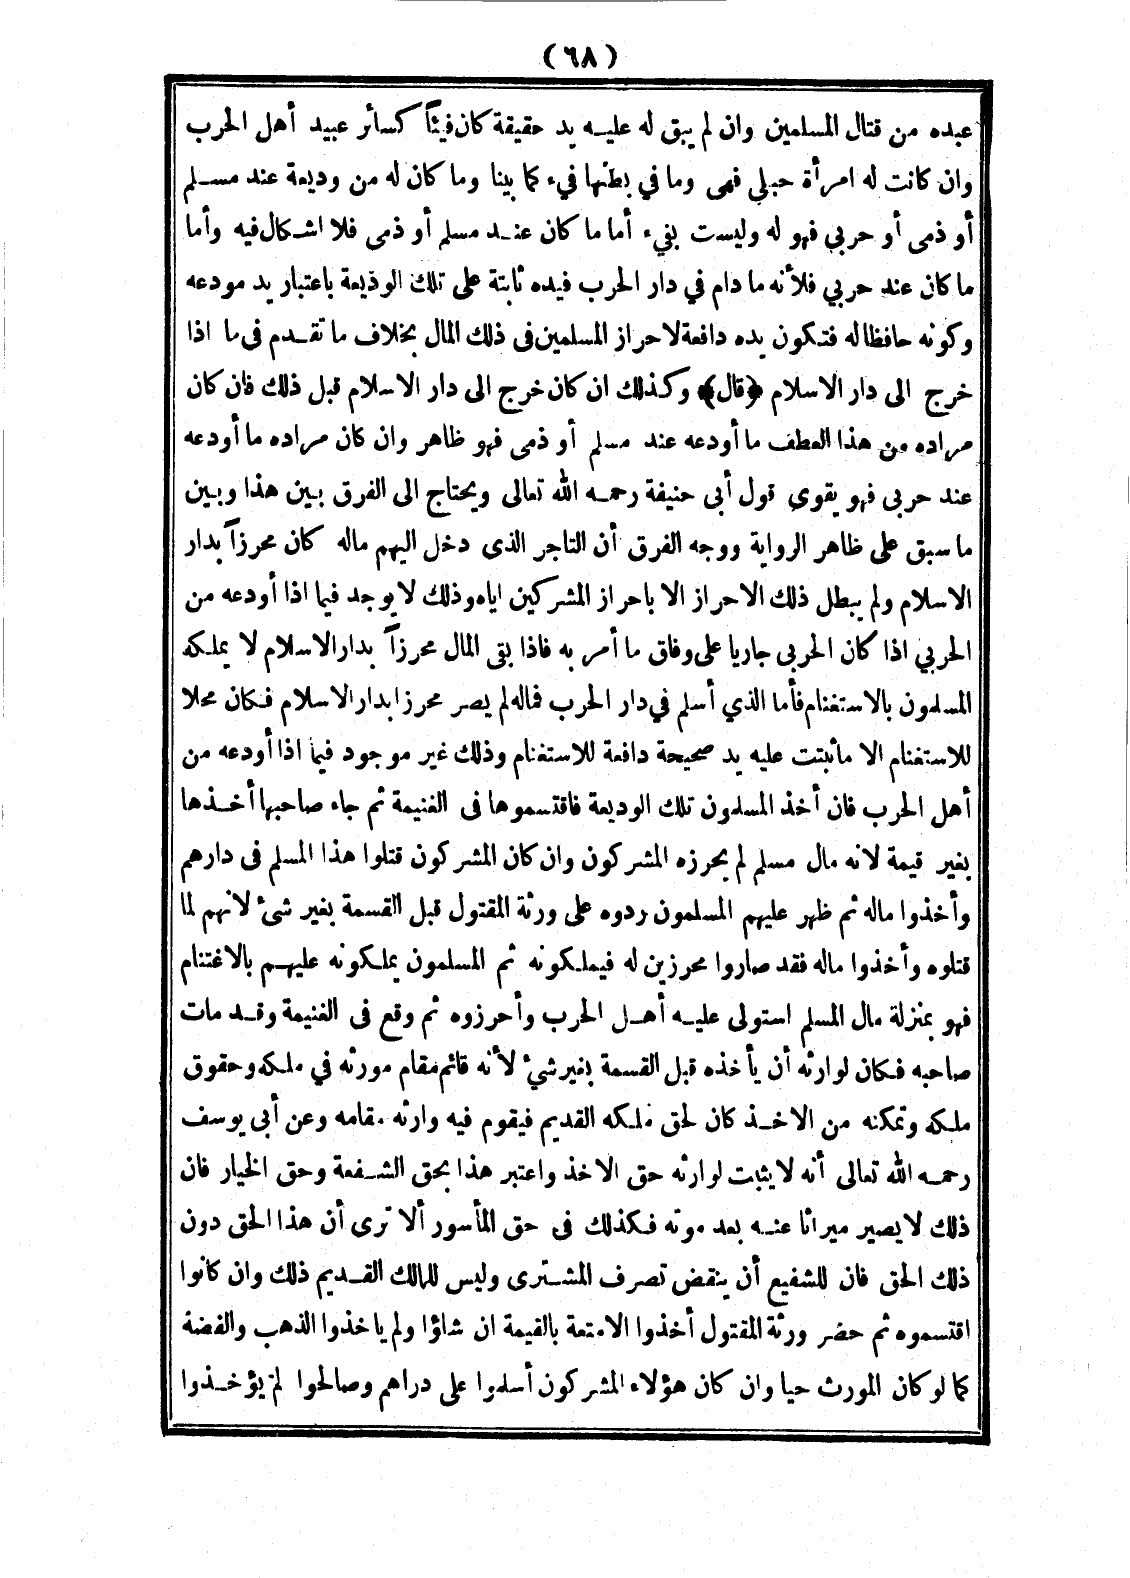 (٦٨)
عبده من قتال المسلمين وان لم يبق له عليه يد حقيقة كان فيئاً كسائر عبيد أهل الحرب
وان كانت له امرأة حبلي فهى وما في بطنها فيء كما بينا وما كان له من وديعة عند مسلم
أو ذمى أو حربي فهو له وليست بفيء أما ما كان عند مسلم أو ذمى فلا اشكال فيه وأما
ما كان عند حربي فلأنه ما دام في دار الحرب فيده ثابتة على تلك الوديعة باعتبار يد مودعه
وكونه حافظا له فتكون يده دافعة لاحراز المسلمين فى ذلك المال بخلاف ما تقدم فى ما اذا
خرج الى دار الاسلام ﴿قال﴾ وكذلك ان كان خرج الى دار الاسلام قبل ذلك فان كان
مراده من هذا العطف ما أودعه عند مسلم أو ذمى فهو ظاهر وان كان مراده ما أودعه
عند حربى فهو يقوى قول أبى حنيفة رحمه الله تعالى ويحتاج الى الفرق بين هذا وبين
ما سبق على ظاهر الرواية ووجه الفرق أن التاجر الذى دخل اليهم ماله كان محرزاً بدار
الاسلام ولم يبطل ذلك الاحراز الا باحراز المشركين اياه وذلك لا يوجد فيما اذا أودعه من
الحربي اذا كان الحربى جاريا على وفاق ما أمر به فاذا بقى المال محرزاً بدار الاسلام لا يملكه
المسلمون بالاستغنام فأما الذي أسلم في دار الحرب فماله لم يصر محرزا بدار الاسلام فكان محلا
للاستغنام الا ما ثبتت عليه يد صحيحة دافعة للاستغنام وذلك غير موجود فيما اذا أودعه من
أهل الحرب فان أخذ المسلمون تلك الوديعة فاقتسموها فى الغنيمة ثم جاء صاحبها أخذها
بغير قيمة لانه مال مسلم لم يحرزه المشركون وان كان المشركون قتلوا هذا المسلم فى دارهم
وأخذوا ماله ثم ظهر عليهم المسلمون ردوه على ورثة المقتول قبل القسمة بغير شئ لانهم لما
قتلوه وأخذوا ماله فقد صاروا محرزين له فيملكونه ثم المسلمون يملكونه عليهم بالاغتنام
فهو بمنزلة مال المسلم استولى عليه أهل الحرب وأحرزوه ثم وقع فى الغنيمة وقد مات
صاحبه فكان لوارثه أن يأخذه قبل القسمة بغير شئ لأنه قائم مقام مورثه في ملكه وحقوق
ملكه وتمكنه من الاخذ كان لحق ملكه القديم فيقوم فيه وارثه مقامه وعن أبى يوسف
رحمه الله تعالى أنه لا يثبت لوارثه حق الاخذ واعتبر هذا بحق الشفعة وحق الخيار فان
ذلك لا يصير ميراثا عنه بعد موته فكذلك فى حق المأسور ألا ترى أن هذا الحق دون
ذلك الحق فان للشفيع أن ينقض تصرف المشترى وليس للمالك القديم ذلك وان كانوا
اقتسموه ثم حضر ورثة المقتول أخذوا الامتعة بالقيمة ان شاؤا ولم ياخذوا الذهب والفضة
كما لو كان المورث حيا وان كان هؤلاء المشركون أسلموا على دراهم وصالحوا لم يؤخذوا